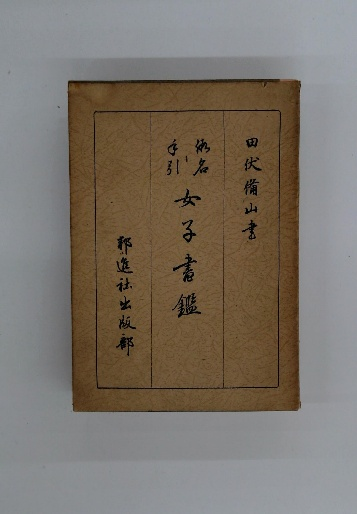 田伏備山書
仮名
手引
女子書鑑
邦進社出版部